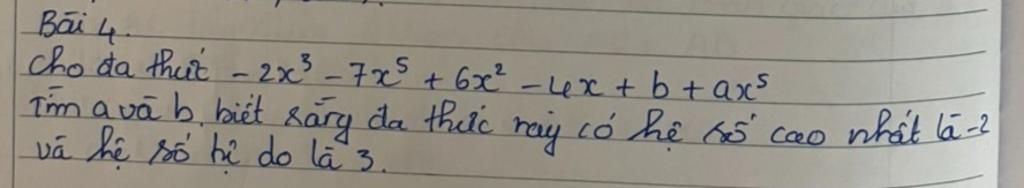 Bài 4.
Cho đa thức - 2x³ - 7x⁵ + 6x² - 4x + b + ax⁵
Tìm a và b, biết rằng đa thức này có hệ số cao nhất là -2
và hệ số tự do là 3.